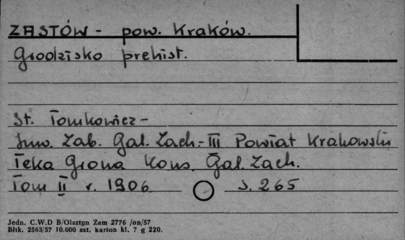 ZASTÓW - pow. Kraków.
Grodzisko prehist.
St. Tomkowicz -
Inw. Zab. Gal. Zach. - III Powiat Krakowski
Teka Grona Kons. Gal. Zach.
Tom II r. 1906 s. 265
Jedn. C.W.D B/Olsztyn Zam 2776 /on/57
Bltk. 2563/57 10.000 szt. karton kl. 7 g 220.